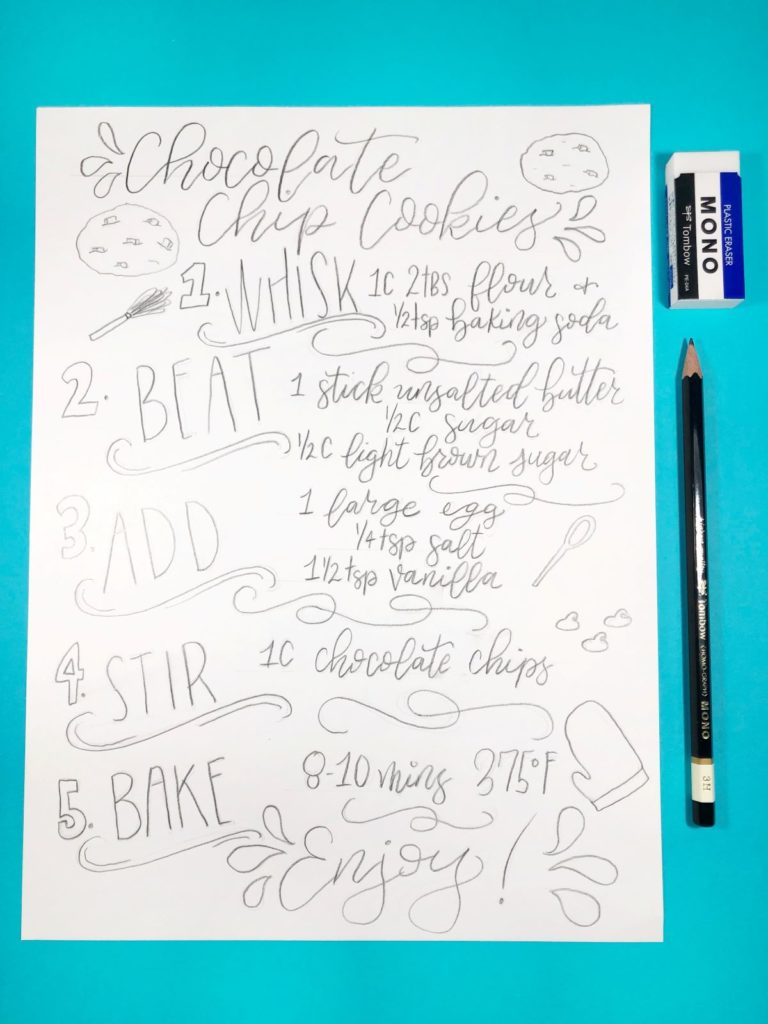 Chocolate
Chip Cookies
1. WHISK 1C 2tbs flour +
1/2tsp baking soda
2. BEAT 1 stick unsalted butter
1/2C sugar
1/2C light brown sugar
3. ADD 1 large egg
1/4tsp salt
1 1/2tsp vanilla
4. STIR 1C chocolate chips
5. BAKE 8-10 mins 375°F
Enjoy!
PLASTIC ERASER
MONO
Tombow
Tombow
MONO
3H